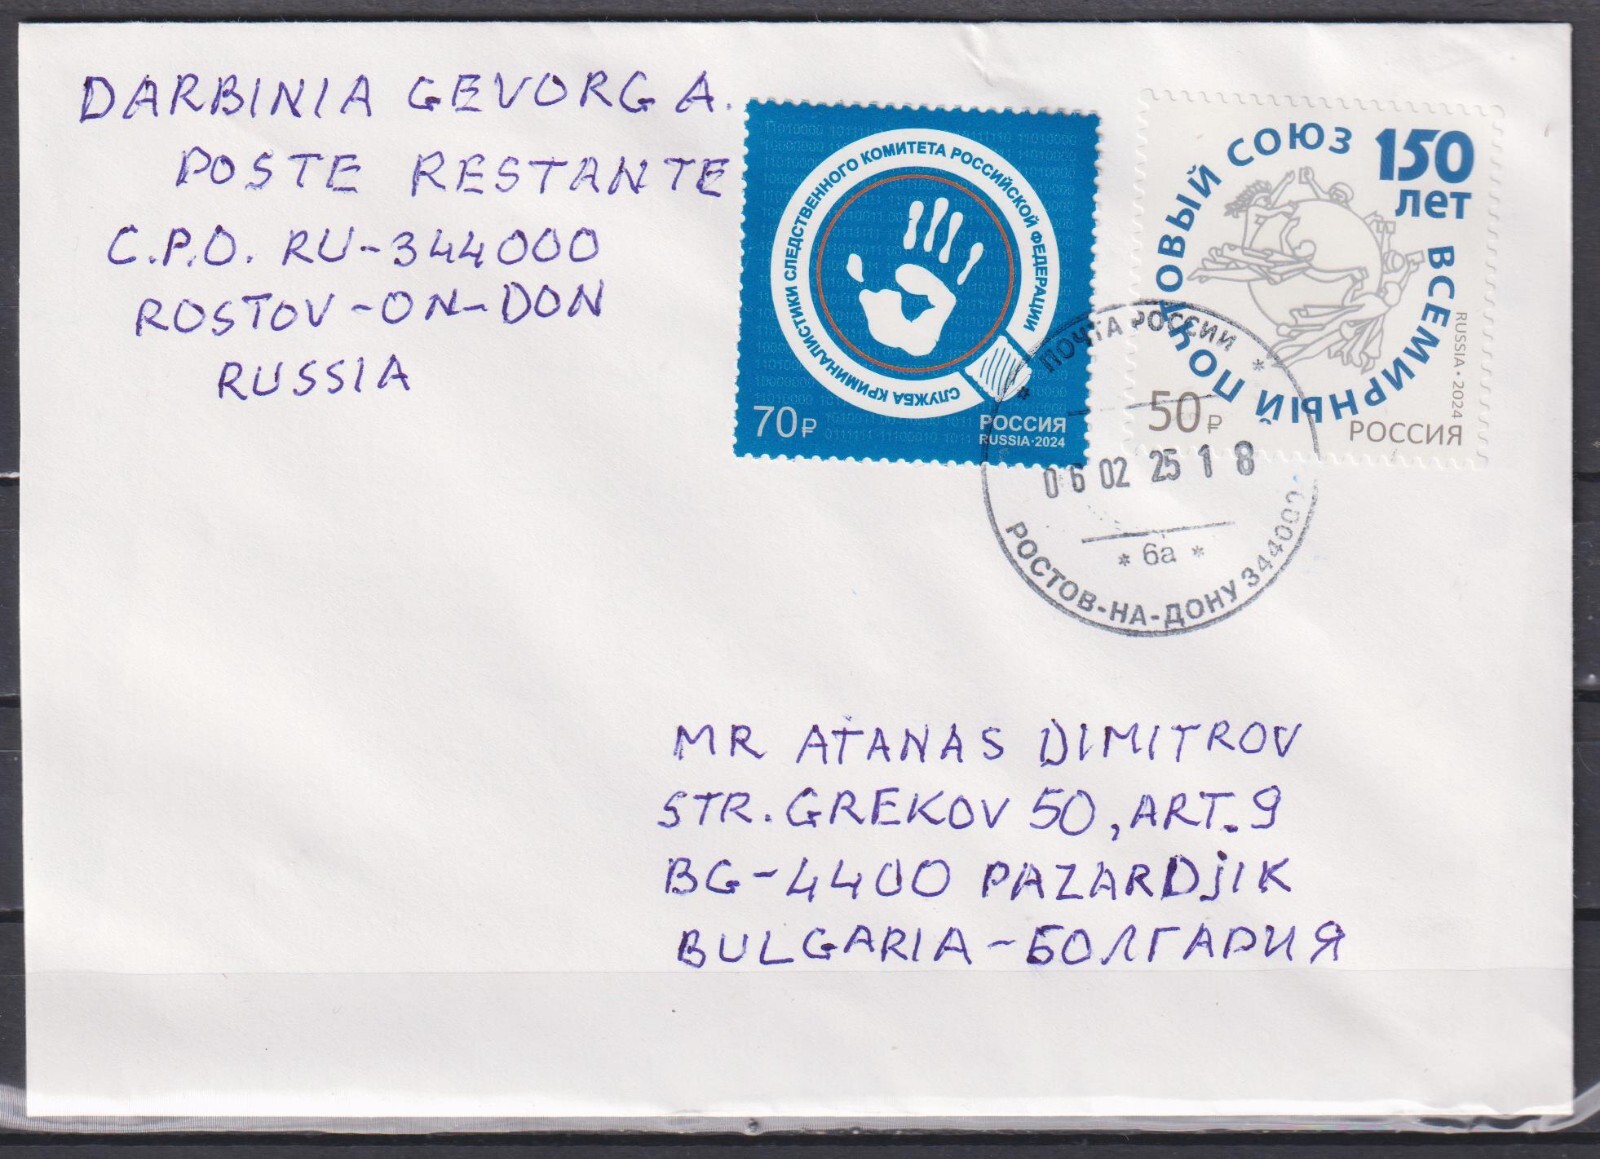 DARBINIA GEVORG A.
POSTE RESTANTE
C.P.O. RU-344000
ROSTOV-ON-DON
RUSSIA
СЛУЖБА КРИМИНАЛИСТИКИ СЛЕДСТВЕННОГО КОМИТЕТА РОССИЙСКОЙ ФЕДЕРАЦИИ
70₽
РОССИЯ
RUSSIA·2024
ВСЕМИРНЫЙ ПОЧТОВЫЙ СОЮЗ
150
лет
RUSSIA·2024
50₽
РОССИЯ
* ПОЧТА РОССИИ *
06 02 25 1 8
* 6а *
РОСТОВ-НА-ДОНУ 344000
MR ATANAS DIMITROV
STR. GREKOV 50, ART. 9
BG-4400 PAZARDjIK
BULGARIA-БОЛГАРИЯ